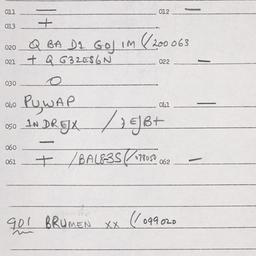 011 — 012 —
013 +
020 Q BA D1 GOJ IM (/200063
021 + Q G32ES6N 022 —
030 O
040 PU,WAP 041 —
050 INDREJX /) EJB+
060 —
061 + /BAL83S(/079050 062 —
901 BRUMEN xx (/099020